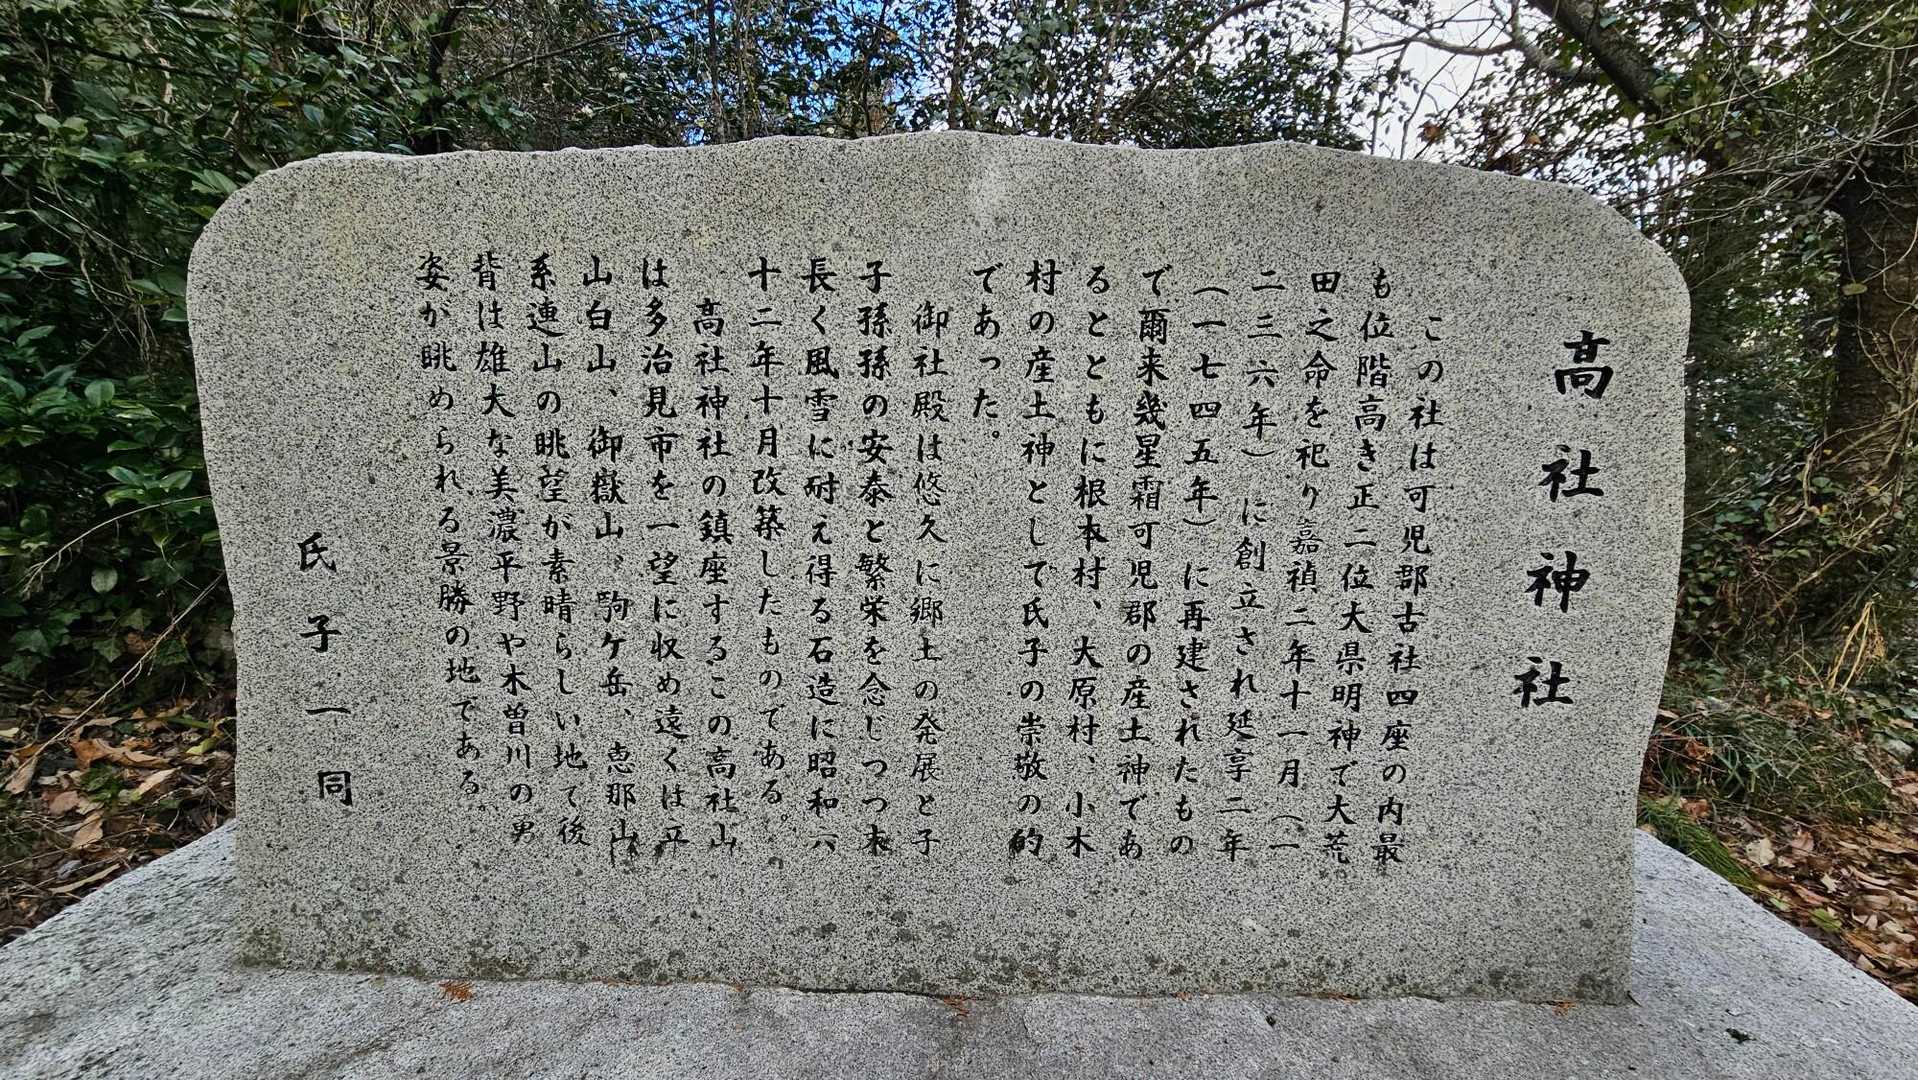 高社神社
この社は可児郡古社四座の内最
も位階高き正二位大県明神で大荒
田之命を祀り嘉禎二年十一月(一
二三六年)に創立され延享二年
(一七四五年)に再建されたもの
で爾来幾星霜可児郡の産土神であ
るとともに根本村、大原村、小木
村の産土神として氏子の崇敬の的
であった。
御社殿は悠久に郷土の発展と子
子孫孫の安泰と繁栄を念じつつ末
長く風雪に耐え得る石造に昭和六
十二年十月改築したものである。
高社神社の鎮座するこの高社山
は多治見市を一望に収め遠くは立
山白山、御嶽山、駒ケ岳、恵那山
系連山の眺望が素晴らしい地で後
背は雄大な美濃平野や木曽川の勇
姿が眺められる景勝の地である。
氏子一同